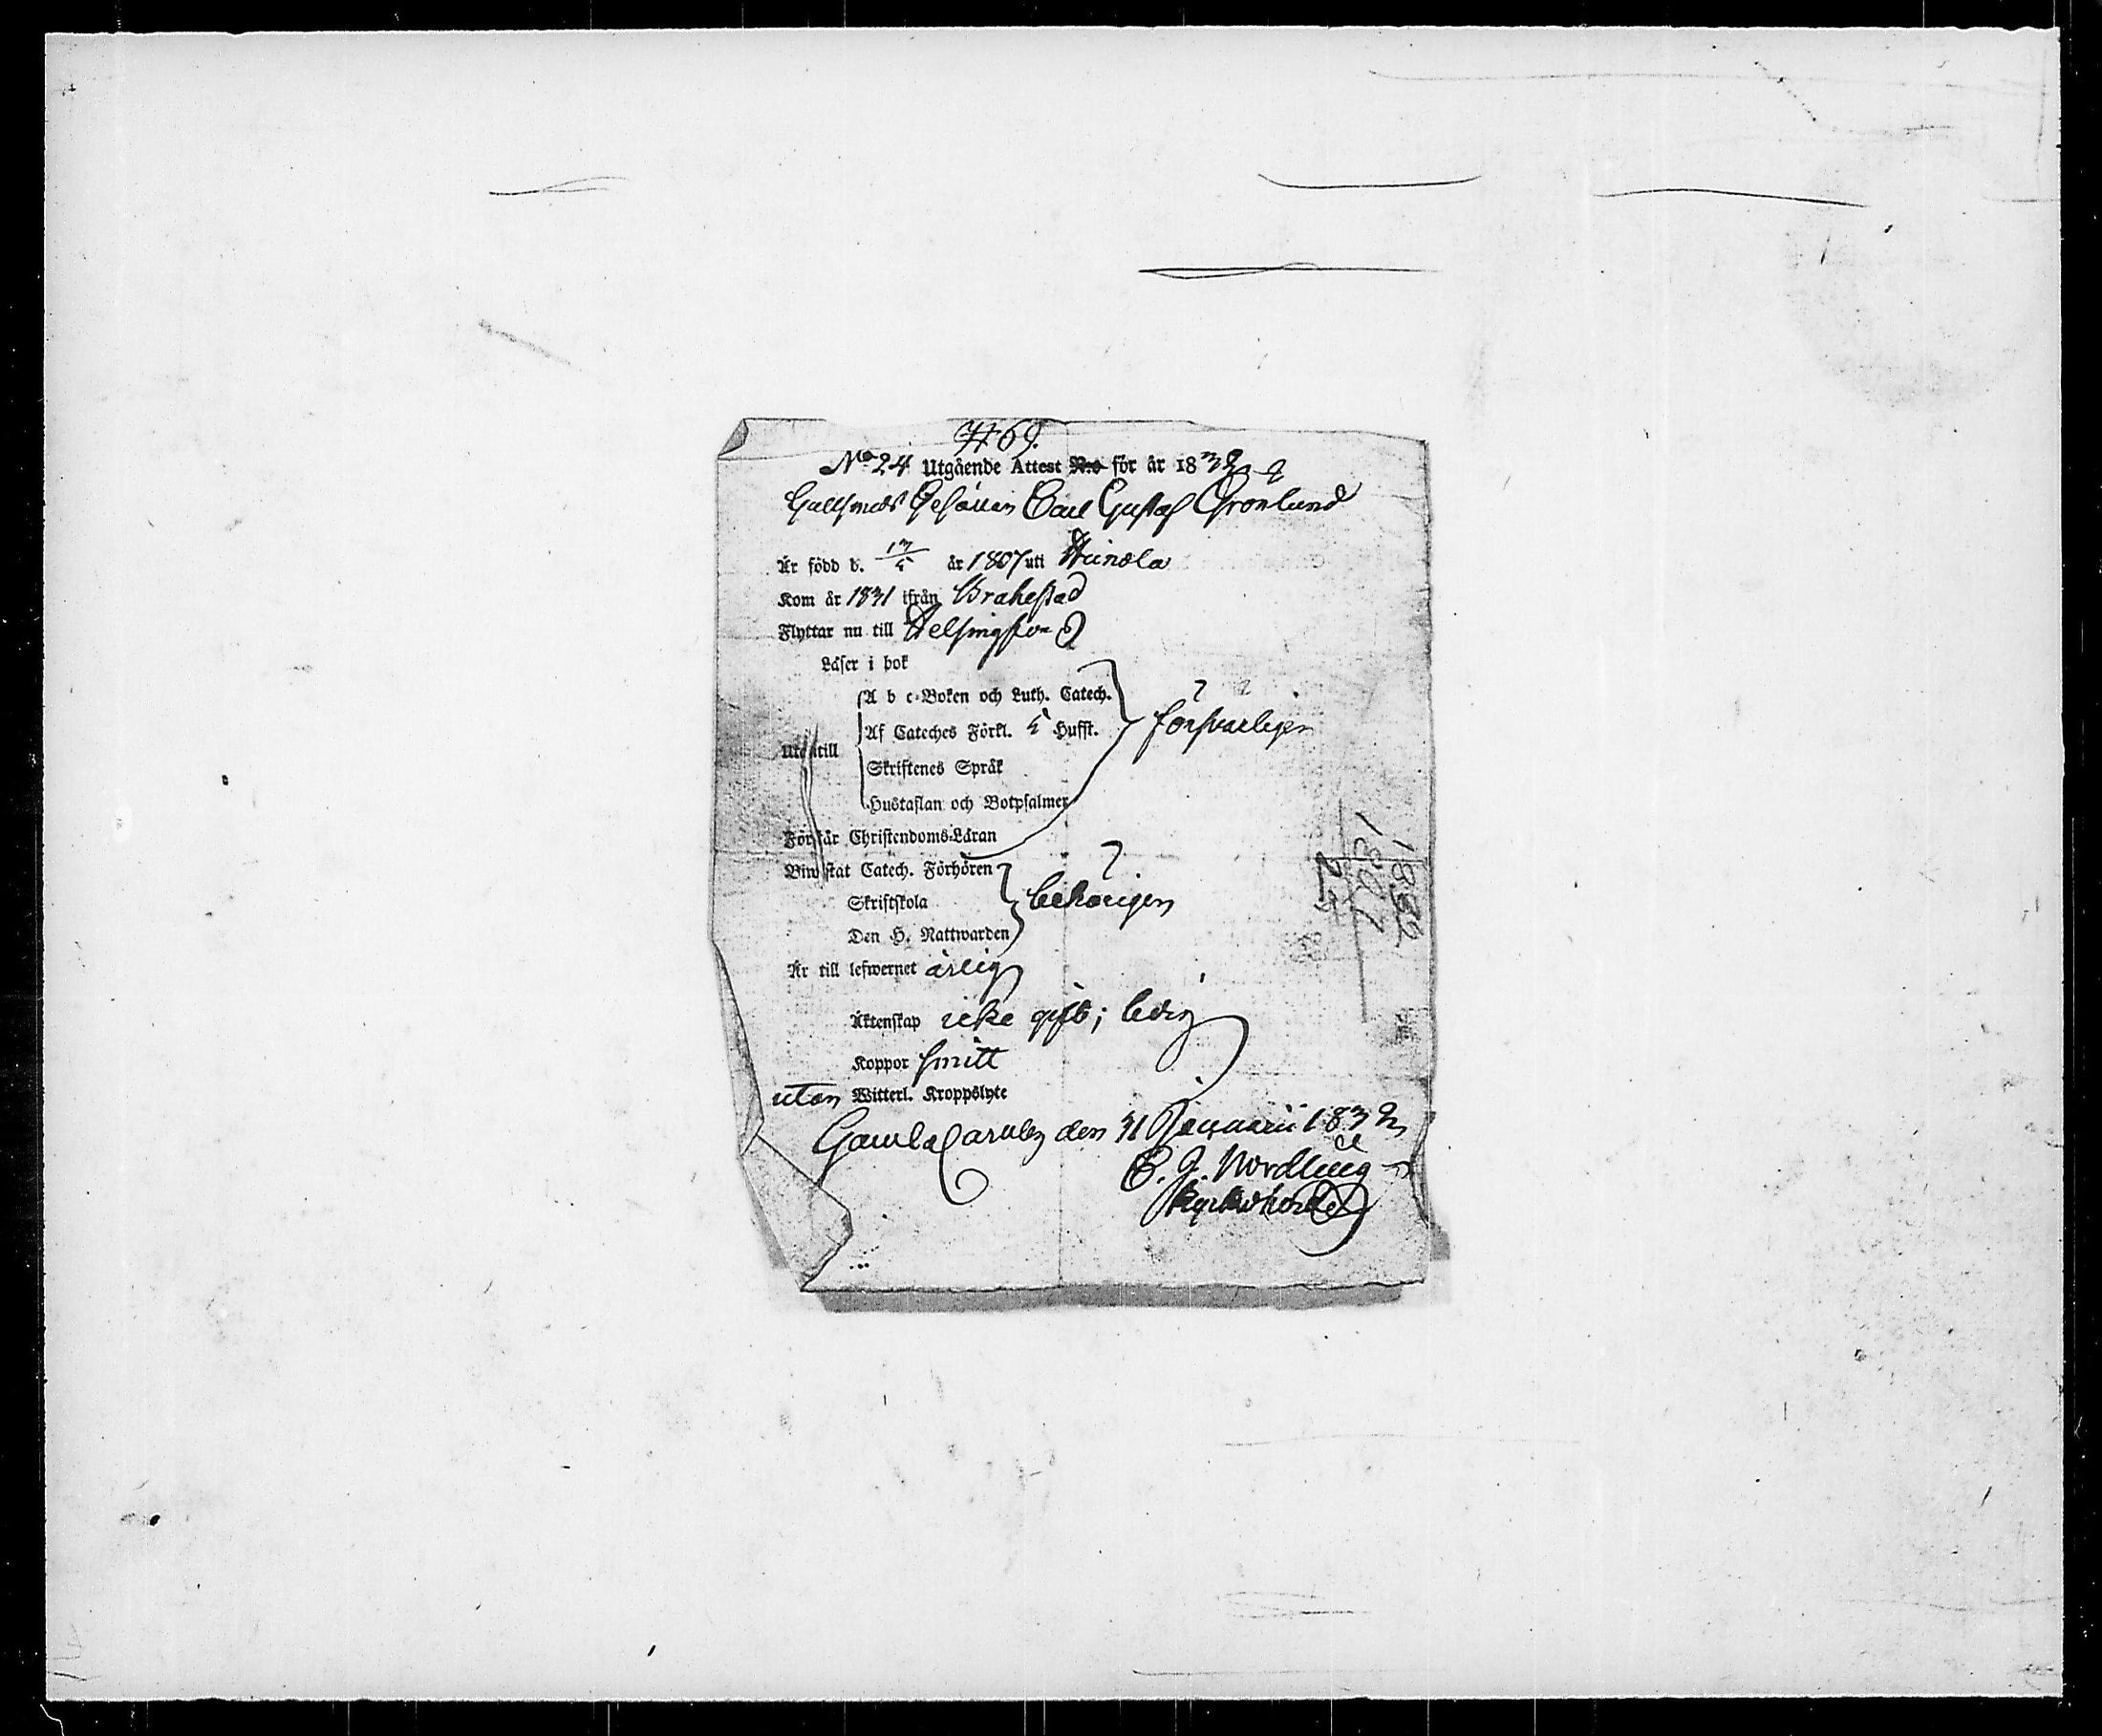 # 69.
No 24 Utgående Attest N:o för år 1832
Gullsmeds Gesällen Carl Gustaf Grönlund
Är född d. 13/5 år 1807 uti
Kom år 1831 ifrån Brahestad
Flyttar nu till Helsingfors
Läser i bok
A b c-Boken och Luth. Catech.
Af Cateches Förkl. 5 Hufst. försvarligen
Utantill
Skriftenes Språk
Hustaflan och Botpsalmer
Förstår Christendoms-Läran
Biwistat Catech. Förhören
Skriftskola behörigen
Den H. Nattwarden
Är till lefwernet ärlig
Äktenskap icke gift; ledig
Koppor smitt
utan Witterl. Kroppslyte
Gamlacarleby den 31 Januarii 1832
C. J. Nordling
Kyrkoherde
1832
1807
25